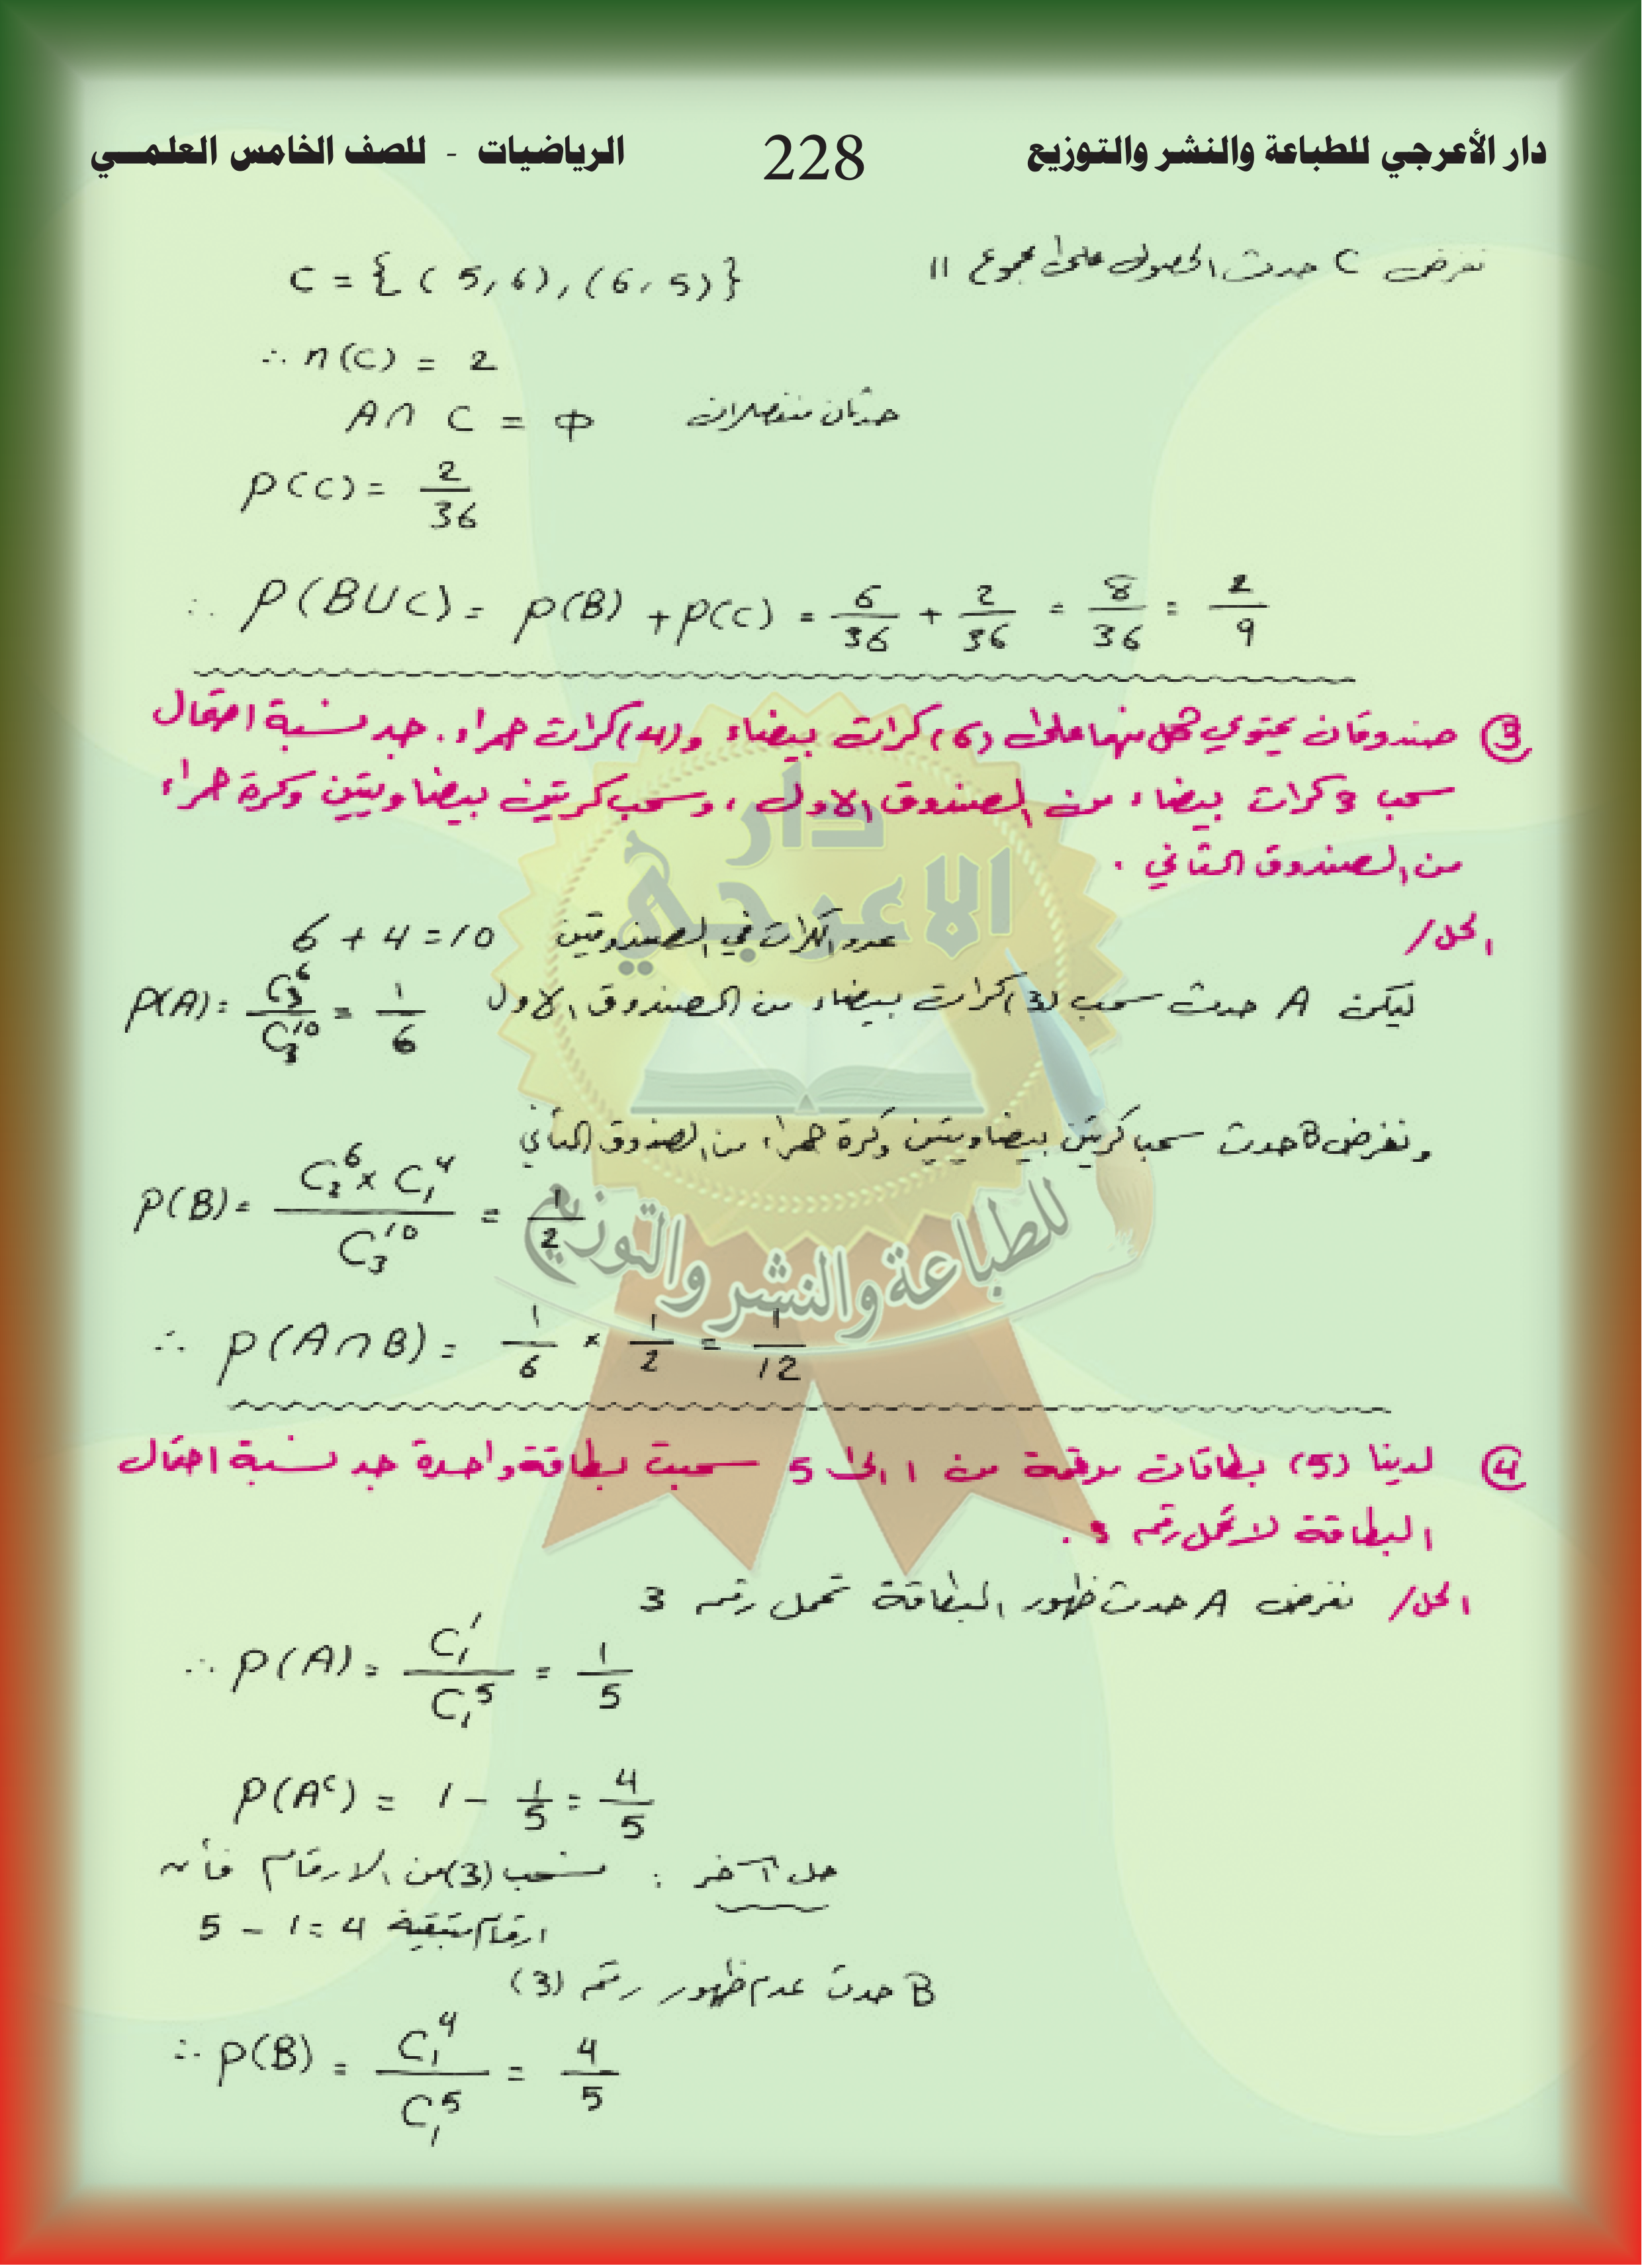 دار الأعرجي للطباعة والنشر والتوزيع 228 الرياضيات - للصف الخامس العلمـــي
نفرض C حدث الحصول على مجموع 11 C = { ( 5, 6 ) , ( 6, 5 ) }
∴ n(C) = 2
A ∩ C = Φ حدثان منفصلان
P(C) = 2/36
∴ P(B∪C) = P(B) + P(C) = 6/36 + 2/36 = 8/36 = 2/9
③ صندوقان يحتوي كل منهما على (6) كرات بيضاء و(4) كرات حمراء. جد نسبة احتمال
سحب 3 كرات بيضاء من الصندوق الاول ، وسحب كريتين بيضاويتين وكرة حمراء
من الصندوق الثاني .
الحل / عدد الكرات في الصندوقين 6 + 4 = 10
ليكن A حدث سحب (3) كرات بيضاء من الصندوق الاول P(A) = C₃⁶/C₃¹⁰ = 1/6
ونفرض B حدث سحب كريتين بيضاويتين وكرة حمراء من الصندوق الثاني
P(B) = C₂⁶ × C₁⁴ / C₃¹⁰ = 1/2
∴ P(A∩B) = 1/6 × 1/2 = 1/12
④ لدينا (5) بطاقات مرقمة من 1 الى 5 سحبت بطاقة واحدة جد نسبة احتمال
البطاقة لا تحمل رقم 3 .
الحل / نفرض A حدث ظهور البطاقة تحمل رقم 3
∴ P(A) = C₁¹/C₁⁵ = 1/5
P(Aᶜ) = 1 - 1/5 = 4/5
حل آخر : نسحب (3) من الارقام فأن
ارقام متبقية 5 - 1 = 4
B حدث عدم ظهور رقم (3)
∴ P(B) = C₁⁴/C₁⁵ = 4/5
دار
الاعرجي
للطباعة والنشر والتوزيع